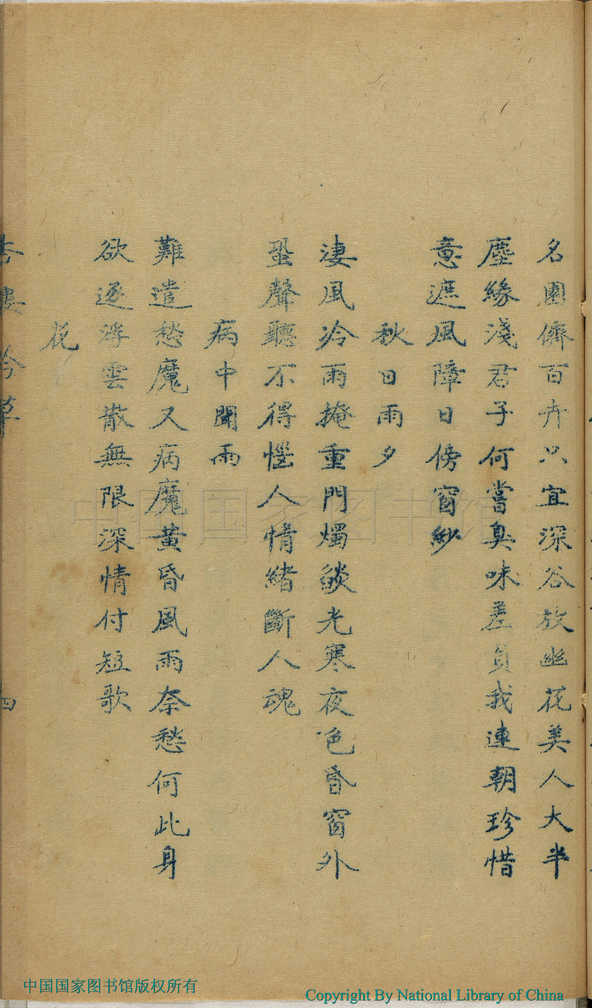 名園儕百卉只宜深谷放幽花美人大半
塵緣淺君子何嘗臭味差負我連朝珍惜
意遮風障日傍窗紗
秋日雨夕
淒風冷雨掩重門燭燄光寒夜色昏窗外
蛩聲聽不得惱人情緒斷人魂
病中聞雨
難遣愁魔又病魔黃昏風雨奈愁何此身
欲逐浮雲散無限深情付短歌
花
吟草
四
中国国家图书馆
中国国家图书馆版权所有
Copyright By National Library of China